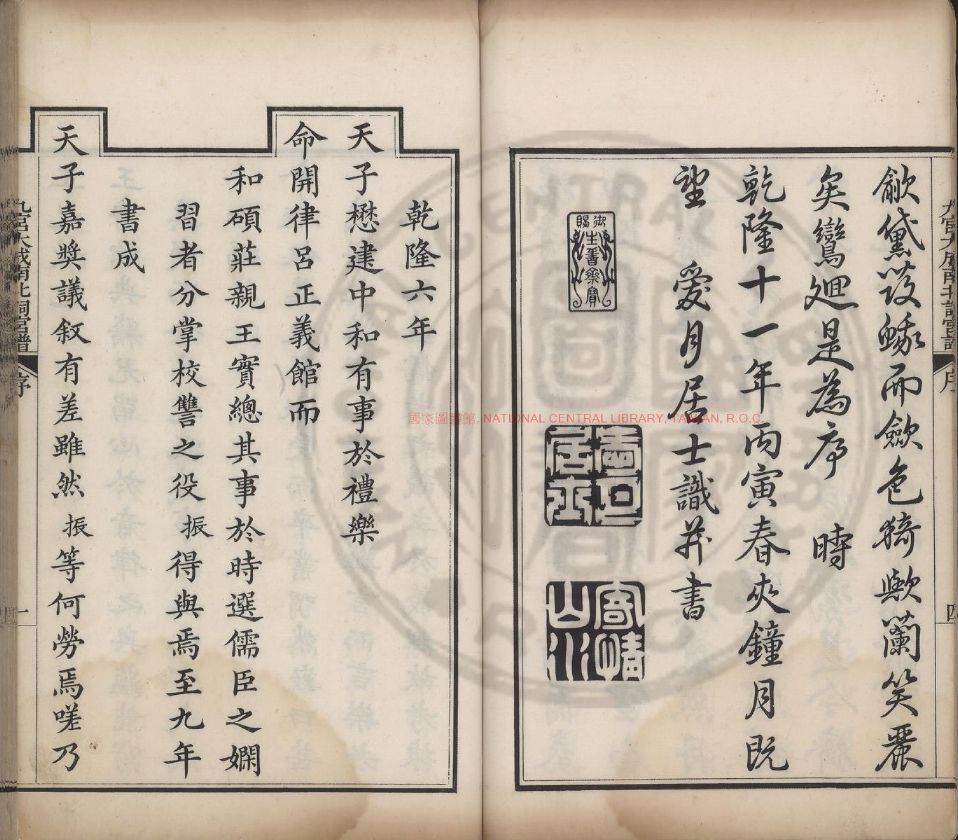 歈黛
蛾而斂色猗歟蘭笑麗
矣鸞迴是為序 時
乾隆十一年丙寅春夾鐘月既
望 愛月居士識並書
御賜
士書樂寶
愛月居士
寄情山水
四
乾隆六年
天子懋建中和有事於禮樂
命開律呂正義館而
和碩莊親王實總其事於時選儒臣之嫻
習者分掌校讐之役振得與焉至九年
書成
天子嘉獎議叙有差雖然振等何勞焉嗟乃
九宮大成南北詞宮譜 序 一
國家圖書館, NATIONAL CENTRAL LIBRARY, TAIWAN, R.O.C